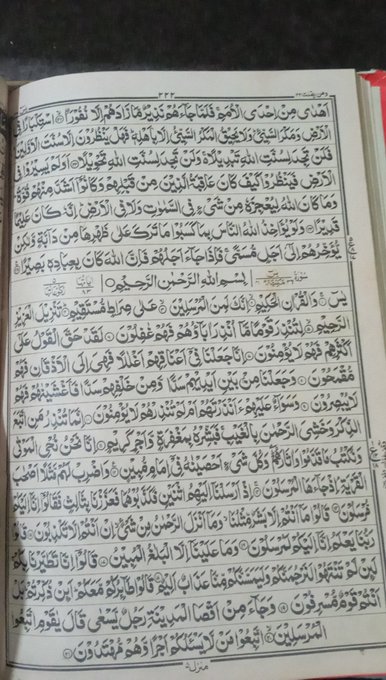 ومن يقنت ٢٢ ٣٣٣
اَهْدٰى مِنْ اِحْدَى الْاُمَمِ فَلَمَّا جَآءَهُمْ نَذِيْرٌ مَّا زَادَهُمْ اِلَّا نُفُوْرًا ۙ اسْتِكْبَارًا فِى
الْاَرْضِ وَمَكْرَ السَّيِّئِ وَلَا يَحِيْقُ الْمَكْرُ السَّيِّئُ اِلَّا بِاَهْلِهٖ فَهَلْ يَنْظُرُوْنَ اِلَّا سُنَّتَ الْاَوَّلِيْنَ
فَلَنْ تَجِدَ لِسُنَّتِ اللّٰهِ تَبْدِيْلًا ۚ وَلَنْ تَجِدَ لِسُنَّتِ اللّٰهِ تَحْوِيْلًا اَوَلَمْ يَسِيْرُوْا فِى
الْاَرْضِ فَيَنْظُرُوْا كَيْفَ كَانَ عَاقِبَةُ الَّذِيْنَ مِنْ قَبْلِهِمْ وَكَانُوْٓا اَشَدَّ مِنْهُمْ قُوَّةً
وَمَا كَانَ اللّٰهُ لِيُعْجِزَهٗ مِنْ شَىْءٍ فِى السَّمٰوٰتِ وَلَا فِى الْاَرْضِ اِنَّهٗ كَانَ عَلِيْمًا
قَدِيْرًا وَلَوْ يُؤَاخِذُ اللّٰهُ النَّاسَ بِمَا كَسَبُوْا مَا تَرَكَ عَلٰى ظَهْرِهَا مِنْ دَآبَّةٍ وَّلٰكِنْ
يُّؤَخِّرُهُمْ اِلٰٓى اَجَلٍ مُّسَمًّى فَاِذَا جَآءَ اَجَلُهُمْ فَاِنَّ اللّٰهَ كَانَ بِعِبَادِهٖ بَصِيْرًا
سُوْرَةُ يٰسٓ بِسْمِ اللّٰهِ الرَّحْمٰنِ الرَّحِيْمِ
يٰسٓ وَالْقُرْاٰنِ الْحَكِيْمِ اِنَّكَ لَمِنَ الْمُرْسَلِيْنَ عَلٰى صِرَاطٍ مُّسْتَقِيْمٍ تَنْزِيْلَ الْعَزِيْزِ
الرَّحِيْمِ لِتُنْذِرَ قَوْمًا مَّآ اُنْذِرَ اٰبَآؤُهُمْ فَهُمْ غٰفِلُوْنَ لَقَدْ حَقَّ الْقَوْلُ عَلٰٓى
اَكْثَرِهِمْ فَهُمْ لَا يُؤْمِنُوْنَ اِنَّا جَعَلْنَا فِىْٓ اَعْنَاقِهِمْ اَغْلٰلًا فَهِىَ اِلَى الْاَذْقَانِ فَهُمْ
مُّقْمَحُوْنَ وَجَعَلْنَا مِنْ بَيْنِ اَيْدِيْهِمْ سَدًّا وَّمِنْ خَلْفِهِمْ سَدًّا فَاَغْشَيْنٰهُمْ فَهُمْ
لَا يُبْصِرُوْنَ وَسَوَآءٌ عَلَيْهِمْ ءَاَنْذَرْتَهُمْ اَمْ لَمْ تُنْذِرْهُمْ لَا يُؤْمِنُوْنَ اِنَّمَا تُنْذِرُ مَنِ اتَّبَعَ
الذِّكْرَ وَخَشِىَ الرَّحْمٰنَ بِالْغَيْبِ فَبَشِّرْهُ بِمَغْفِرَةٍ وَّاَجْرٍ كَرِيْمٍ اِنَّا نَحْنُ نُحْىِ الْمَوْتٰى
وَنَكْتُبُ مَا قَدَّمُوْا وَاٰثَارَهُمْ وَكُلَّ شَىْءٍ اَحْصَيْنٰهُ فِىْٓ اِمَامٍ مُّبِيْنٍ وَاضْرِبْ لَهُمْ مَّثَلًا اَصْحٰبَ
الْقَرْيَةِ اِذْ جَآءَهَا الْمُرْسَلُوْنَ اِذْ اَرْسَلْنَآ اِلَيْهِمُ اثْنَيْنِ فَكَذَّبُوْهُمَا فَعَزَّزْنَا بِثَالِثٍ فَقَالُوْٓا اِنَّآ اِلَيْكُمْ
مُّرْسَلُوْنَ قَالُوْا مَآ اَنْتُمْ اِلَّا بَشَرٌ مِّثْلُنَا وَمَآ اَنْزَلَ الرَّحْمٰنُ مِنْ شَىْءٍ اِنْ اَنْتُمْ اِلَّا تَكْذِبُوْنَ قَالُوْا
رَبُّنَا يَعْلَمُ اِنَّآ اِلَيْكُمْ لَمُرْسَلُوْنَ وَمَا عَلَيْنَآ اِلَّا الْبَلٰغُ الْمُبِيْنُ قَالُوْٓا اِنَّا تَطَيَّرْنَا بِكُمْ
لَئِنْ لَّمْ تَنْتَهُوْا لَنَرْجُمَنَّكُمْ وَلَيَمَسَّنَّكُمْ مِّنَّا عَذَابٌ اَلِيْمٌ قَالُوْا طَآئِرُكُمْ مَّعَكُمْ اَئِنْ ذُكِّرْتُمْ بَلْ
اَنْتُمْ قَوْمٌ مُّسْرِفُوْنَ وَجَآءَ مِنْ اَقْصَا الْمَدِيْنَةِ رَجُلٌ يَّسْعٰى قَالَ يٰقَوْمِ اتَّبِعُوا
الْمُرْسَلِيْنَ اتَّبِعُوْا مَنْ لَّا يَسْئَلُكُمْ اَجْرًا وَّهُمْ مُّهْتَدُوْنَ
منزل ٥